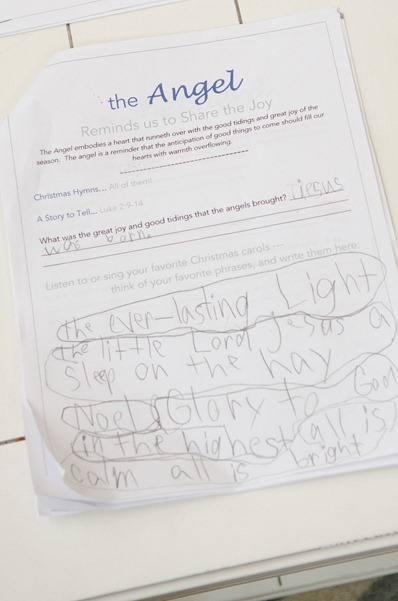 the Angel
Reminds us to Share the Joy
The Angel embodies a heart that runneth over with the good tidings and great joy of the
season. The angel is a reminder that the anticipation of good things to come should fill our
hearts with warmth overflowing.
Christmas Hymns... All of them!
A Story to Tell... Luke 2:9-14
What was the great joy and good tidings that the angels brought? Jesus
was born.
Listen to or sing your favorite Christmas carols ---
think of your favorite phrases, and write them here:
the ever-lasting Light
the little Lord jesus a
sleep on the hay
Noel Glory to God
in the highest all is
calm all is bright